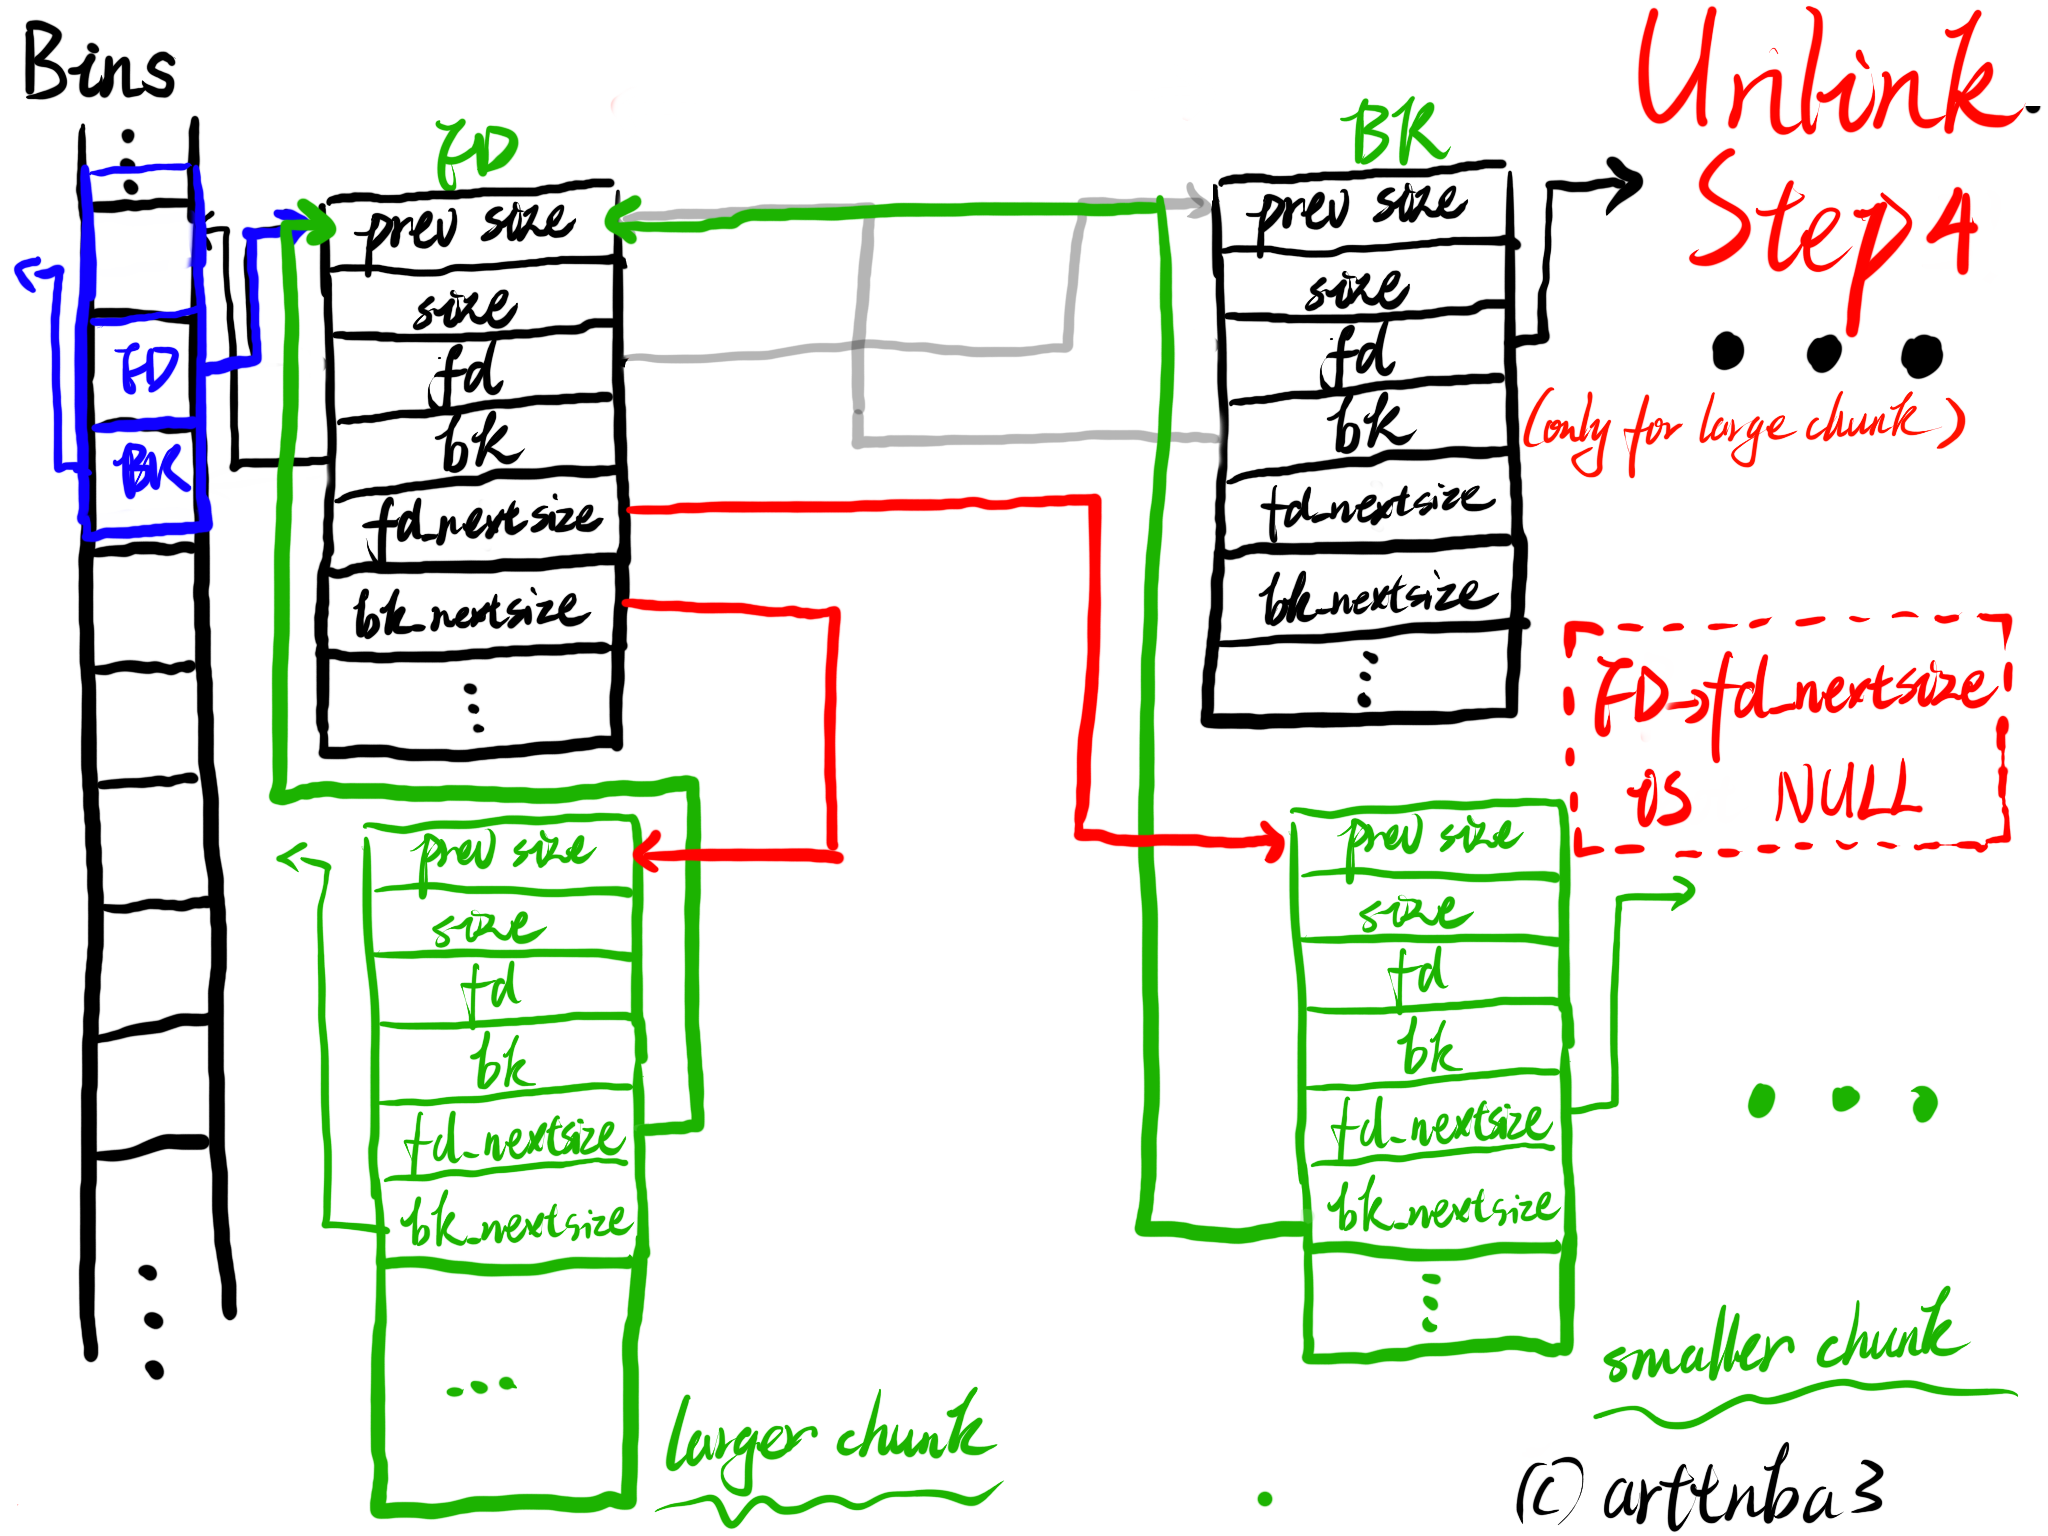 Bins
Unlink.
Step 4
(only for large chunk)
FD
BK
FD
prev size
size
fd
bk
fd_nextsize
bk_nextsize
BK
prev size
size
fd
bk
fd_nextsize
bk_nextsize
FD→fd_nextsize
is NULL
prev size
size
fd
bk
fd_nextsize
bk_nextsize
larger chunk
prev size
size
fd
bk
fd_nextsize
bk_nextsize
smaller chunk
(c) arttnba3